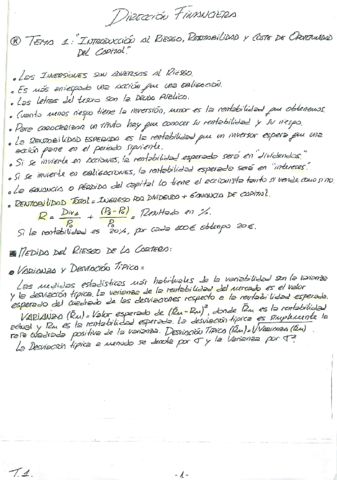 DIRECCIÓN FINANCIERA
TEMA 1: "INTRODUCCIÓN AL RIESGO, RENTABILIDAD Y COSTE DE OPORTUNIDAD
DEL CAPITAL"
• LOS INVERSORES SON ADVERSOS AL RIESGO.
• Es más arriesgado una acción que una obligación.
• Las letras del tesoro son la DEUDA PÚBLICA.
• Cuanto menos riesgo tiene la inversión, menor es la rentabilidad que obtenemos
• Para caracterizar un título hay que conocer su rentabilidad y su riesgo.
• La RENTABILIDAD ESPERADA es la rentabilidad que un inversor espera que una
acción genere en el periodo siguiente.
• Si se invierte en ACCIONES, la rentabilidad esperada será en "dividendos".
• Si se invierte en OBLIGACIONES, la rentabilidad esperada será en "intereses".
• La ganancia o pérdida del capital lo tiene el accionista tanto si vende como si no.
• RENTABILIDAD TOTAL = INGRESO POR DIVIDENDO + GANANCIA DE CAPITAL.
R = Div₁/P₀ + (P₁-P₀)/P₀ = Resultado en %.
Si la rentabilidad es 20%, por cada 100€ obtengo 20€.
MEDIDA DEL RIESGO DE LA CARTERA:
VARIANZA Y DESVIACIÓN TÍPICA =
Las medidas estadísticas más habituales de la variabilidad son la varianza
y la desviación típica. La varianza de la rentabilidad del mercado es el valor
esperado del cuadrado de las desviaciones respecto a la rentabilidad esperada.
VARIANZA (Rm) = Valor esperado de (Rm - Rm)², donde Rm es la rentabilidad
actual y Rm es la rentabilidad esperada. La desviación típica es simplemente la
raíz cuadrada positiva de la varianza. DESVIACIÓN TÍPICA (Rm) = √VARIANZA (Rm).
La Desviación típica a menudo se denota por σ y la Varianza por σ²
T.1.
-1-